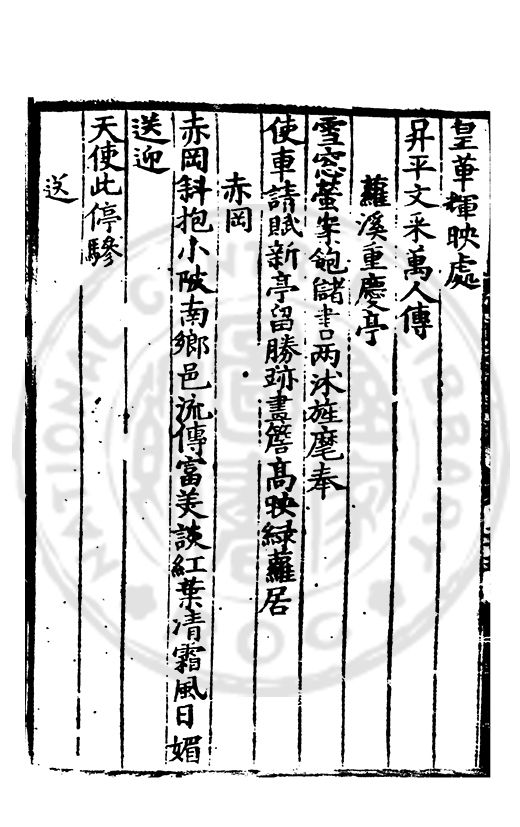 皇華輝映處
昇平文采萬人傳
蘿溪重慶亭
雪窓螢案飽儲書両沐旌麾奉
使車請賦新亭留勝跡畫簷高映緑蘿居
赤岡
赤岡斜抱小陂南鄉邑流傳富美談紅葉清霜風日媚
送迎
天使此停驂
送